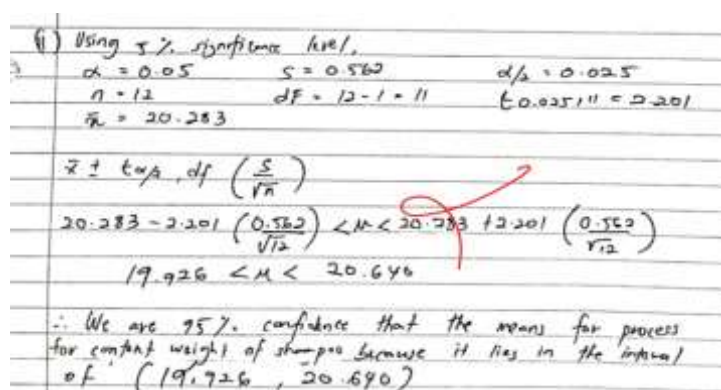 (ii) Using 5% significance level,
α = 0.05 S = 0.562 α/2 = 0.025
n = 12 df = 12 - 1 = 11 t0.025, 11 = 2.201
x̄ = 20.283
x̄ ± tα/2, df (S/√n)
20.283 - 2.201 (0.562/√12) < μ < 20.283 + 2.201 (0.562/√12)
19.926 < μ < 20.640
∴ We are 95% confidence that the means for process
for content weight of because it lies in the interval
of (19.926, 20.640)